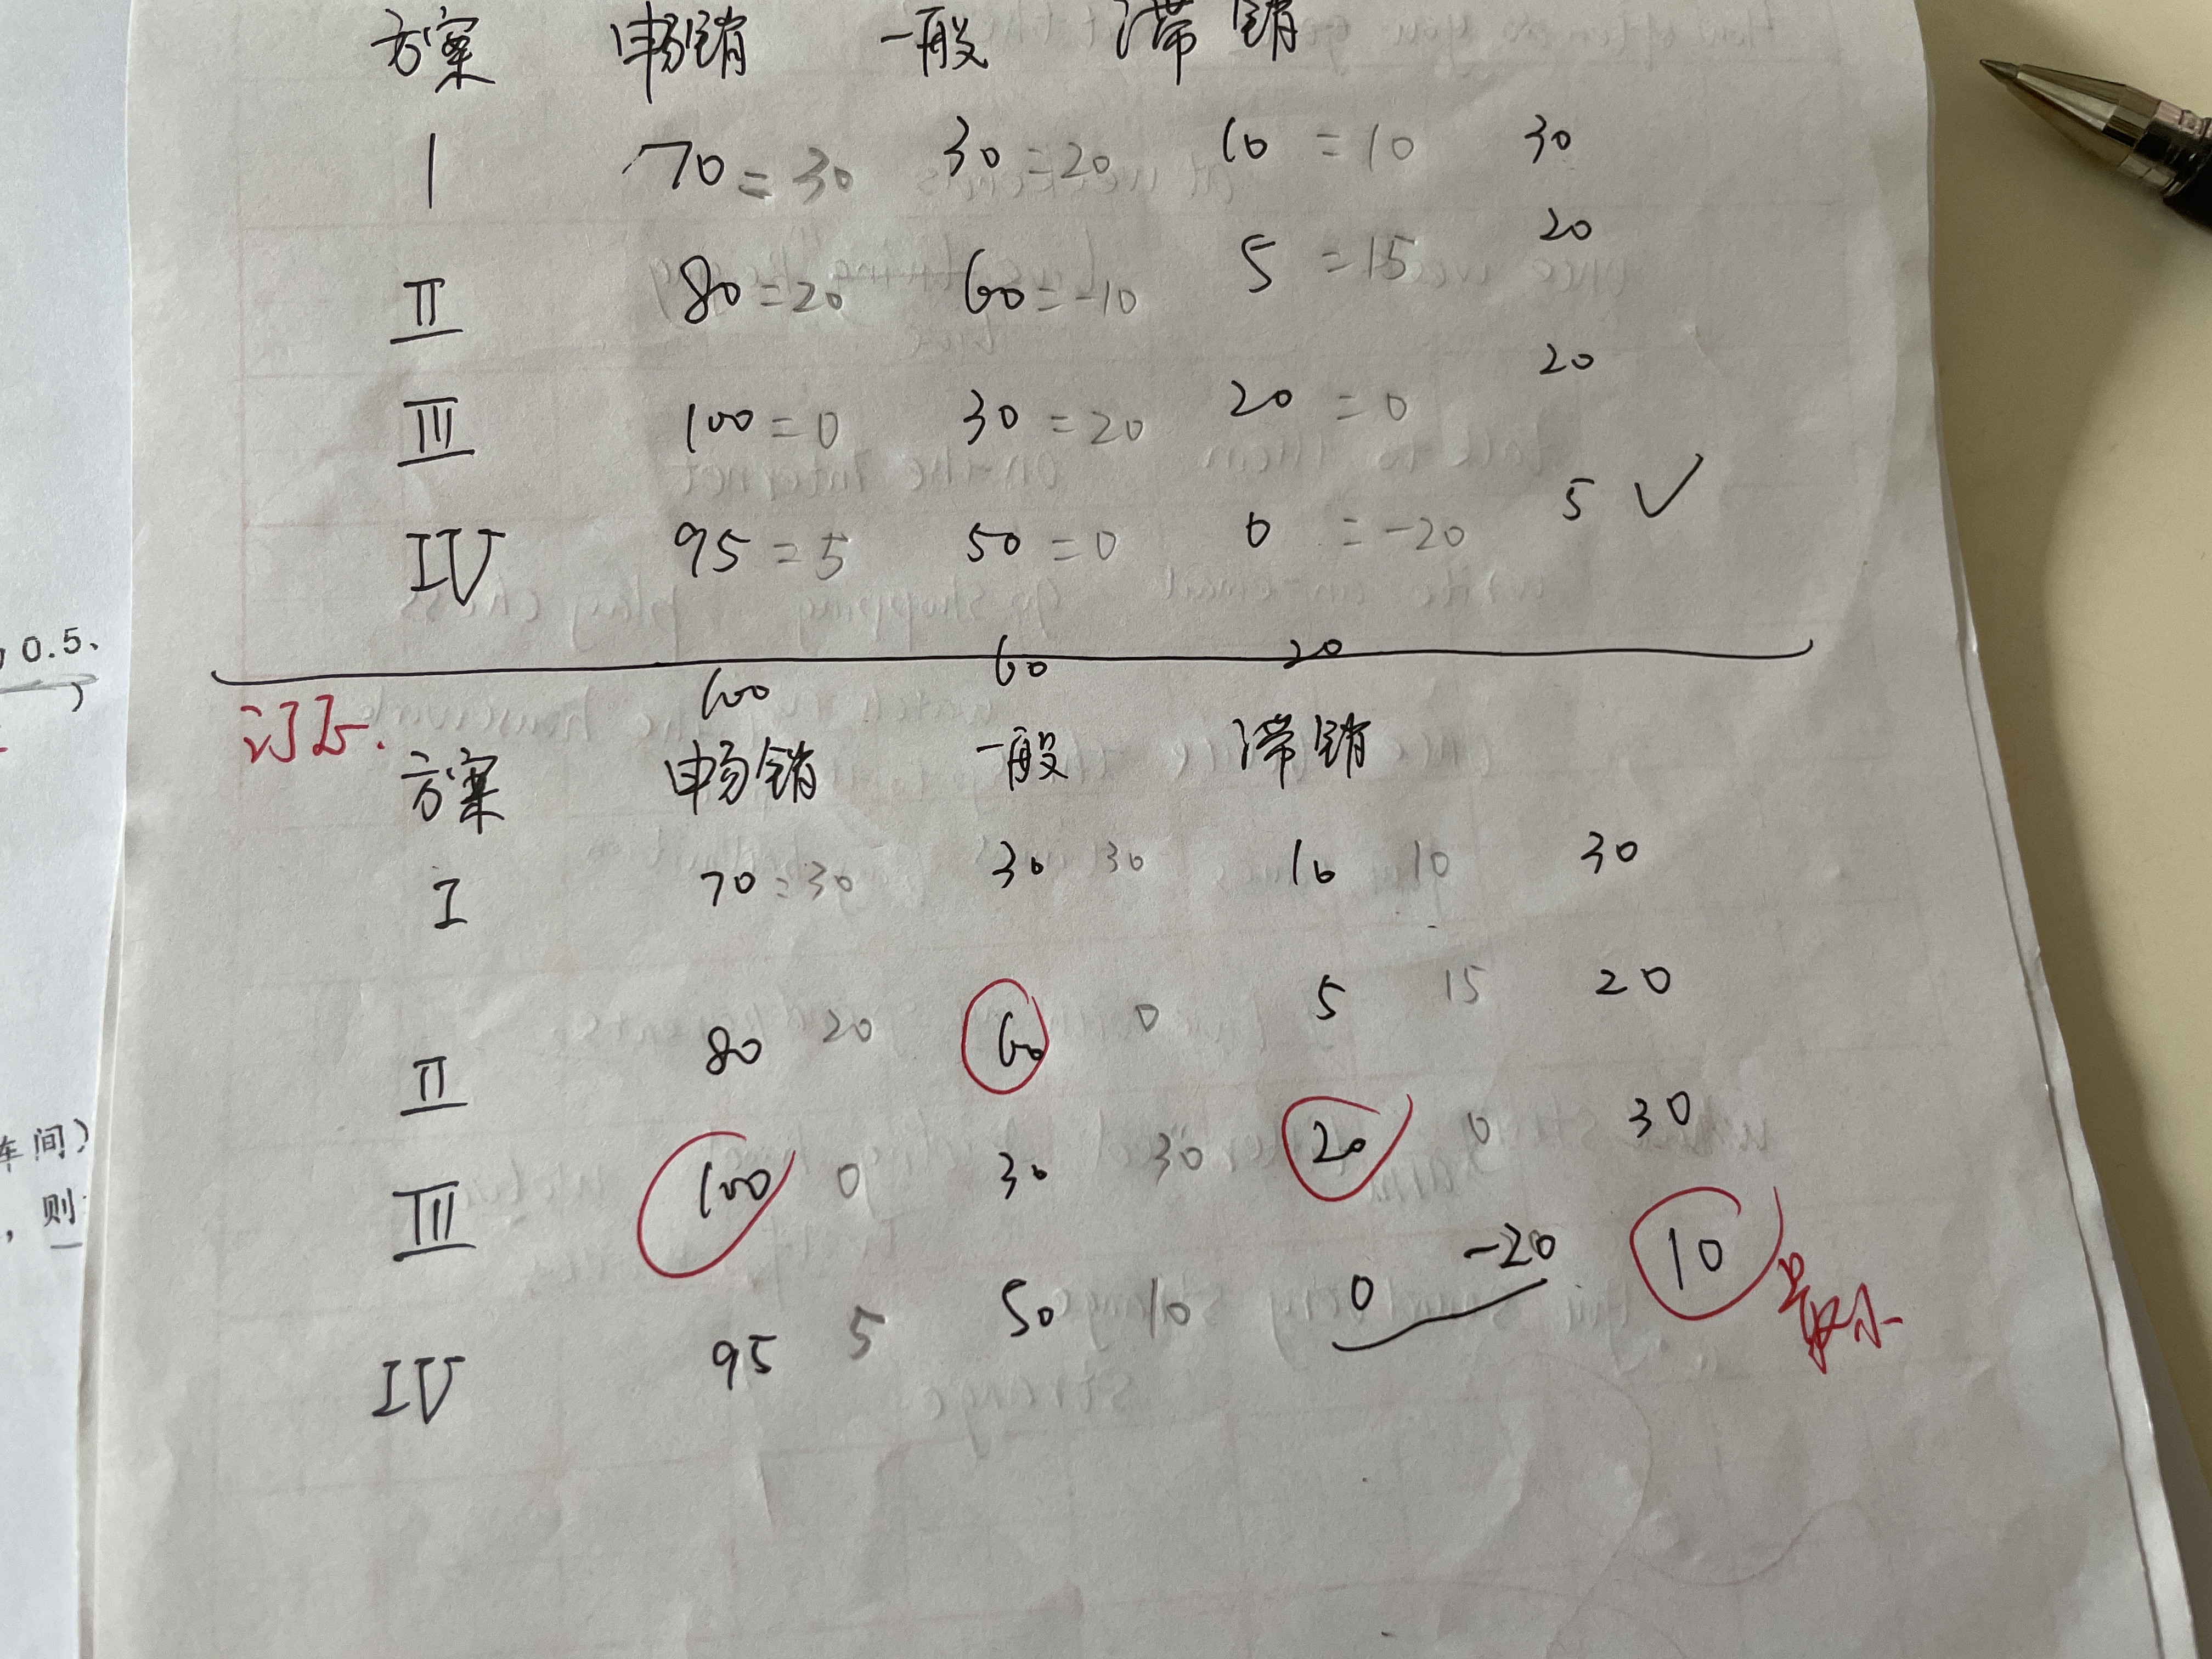 0.5、
)
车间)
，则
方案 畅销 一般 滞销
I 70=30 30=20 10=10 30
II 80=20 60=-10 5=15 20
III 100=0 30=20 20=0 20
IV 95=5 50=0 0=-20 5 √
100 60 20
订正.
方案 畅销 一般 滞销
I 70=30 30 30 10 10 30
II 80 20 60 0 5 15 20
III 100 0 30 30 20 0 30
IV 95 5 50 10 0 -20 10
最小